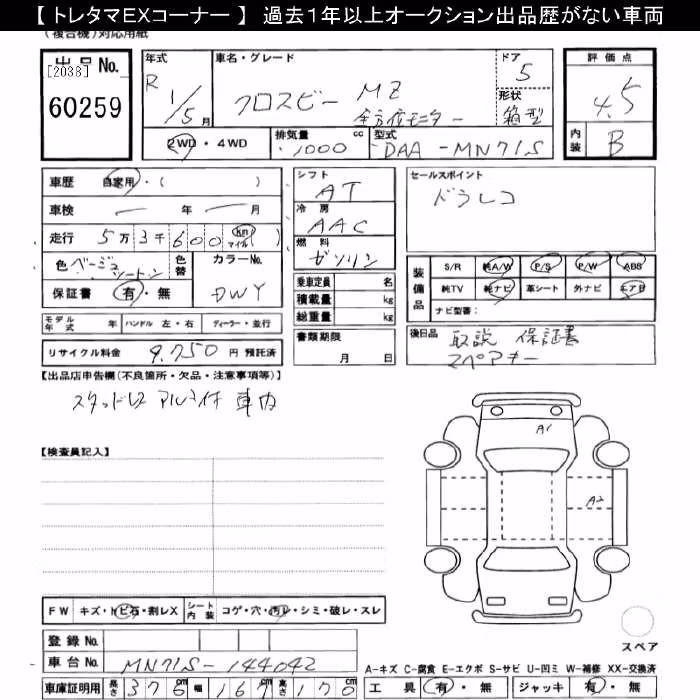 【 トレタマＥＸコーナー 】 過去１年以上オークション出品歴がない車両
(複合機)対応用紙
出品No.
[2038]
60259
年式
R 1/5月
車名・グレード
クロスビー MZ
全方位モニター
ドア
5
形状
箱型
評価点
4.5
内装
B
2WD・4WD
排気量 cc
1000
型式
DAA-MN71S
車歴 自家用・( )
車検 ー 年 ー 月
走行 5万3千600 km マイル ( )
色 ベージュツートン
色替
カラーNo.
DWY
保証書 有・無
シフト
AT
冷房
AAC
燃料
ガソリン
乗車定員 名
積載量 kg
総重量 kg
書類期限
月 日
セールスポイント
ドラレコ
装備品
S/R 純A/W P/S P/W ABS
純TV 純ナビ 革シート 外ナビ エアB
ナビ型番:
後日品
取説 保証書
スペアキー
モデル年式 年 ハンドル 左・右 ディーラー・並行
リサイクル料金 9.750 円 預託済
【出品店申告欄(不良箇所・欠品・注意事項等)】
スタッドレス アルミ付 車内
【検査員記入】
A1
A2
FW キズ・トビ石・割レX シート内装 コゲ・穴・汚レ・シミ・破レ・スレ
登録No.
車台No. MN71S-144042
スペア
A-キズ C-腐食 E-エクボ S-サビ U-凹ミ W-補修 XX-交換済
車庫証明用 長さ 376cm 幅 167cm 高さ 170cm
工具 有・無 ジャッキ 有・無